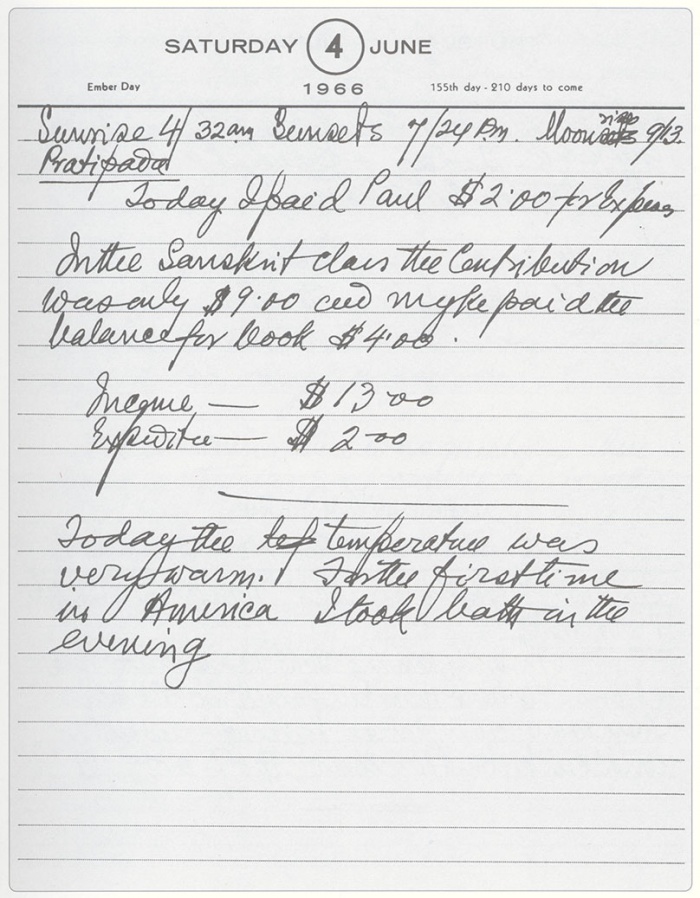 SATURDAY 4 JUNE
Ember Day 1966 155th day - 210 days to come
Sunrise 4/32am Sunsets 7/24 P.m. Moon rises 9/13.
Pratipada
Today I paid Paul $2.00 for Expenses
In the Sanskrit class the Contribution
was only $9.00 and paid the
balance for book $4.00.
Income — $13-00
$2-00
Today the temperature was
very warm. In the first time
in America I took bath in the
evening